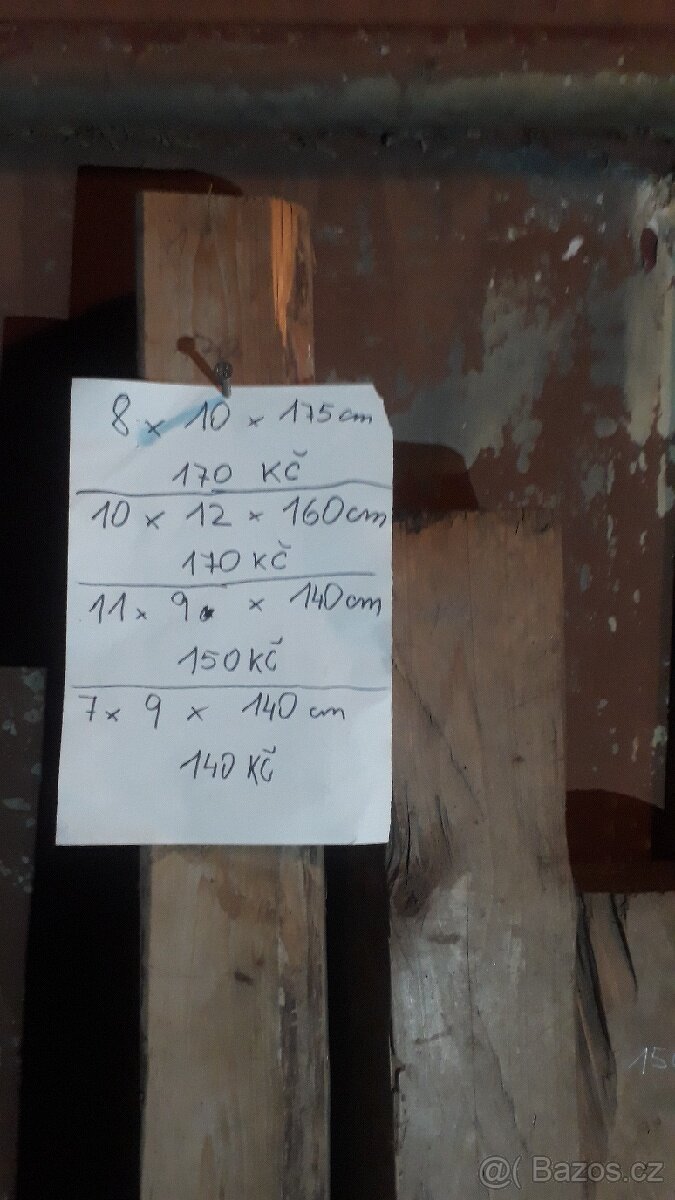 8 x 10 x 175 cm
170 KČ
10 x 12 x 160 cm
170 KČ
11 x 9 x 140 cm
150 KČ
7 x 9 x 140 cm
140 KČ
@( Bazos.cz